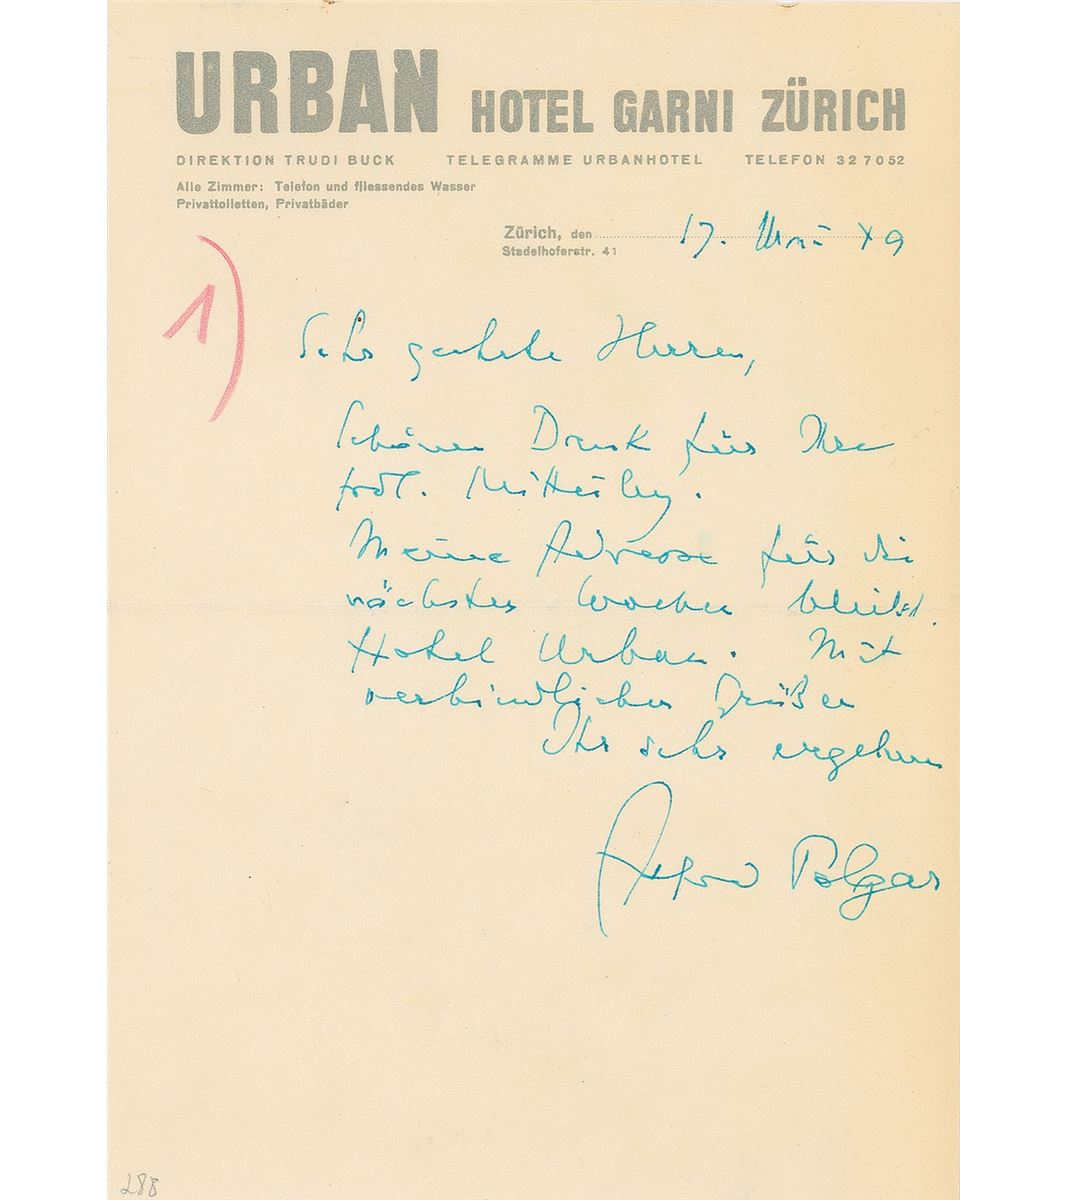 URBAN HOTEL GARNI ZÜRICH
DIREKTION TRUDI BUCK TELEGRAMME URBANHOTEL TELEFON 32 70 52
Alle Zimmer: Telefon und fliessendes Wasser
Privattoiletten, Privatbäder
Zürich, den 17.
Stadelhoferstr. 41
1)
Sehr geehrte Herren,
Schönen Dank für Ihre
frdl. Mitteilg.
Meine Adresse für die
nächsten Wochen bleibt
Hotel Urban. Mit
verbindlichen Grüßen
Ihr sehr ergebener
Alfred Polgar